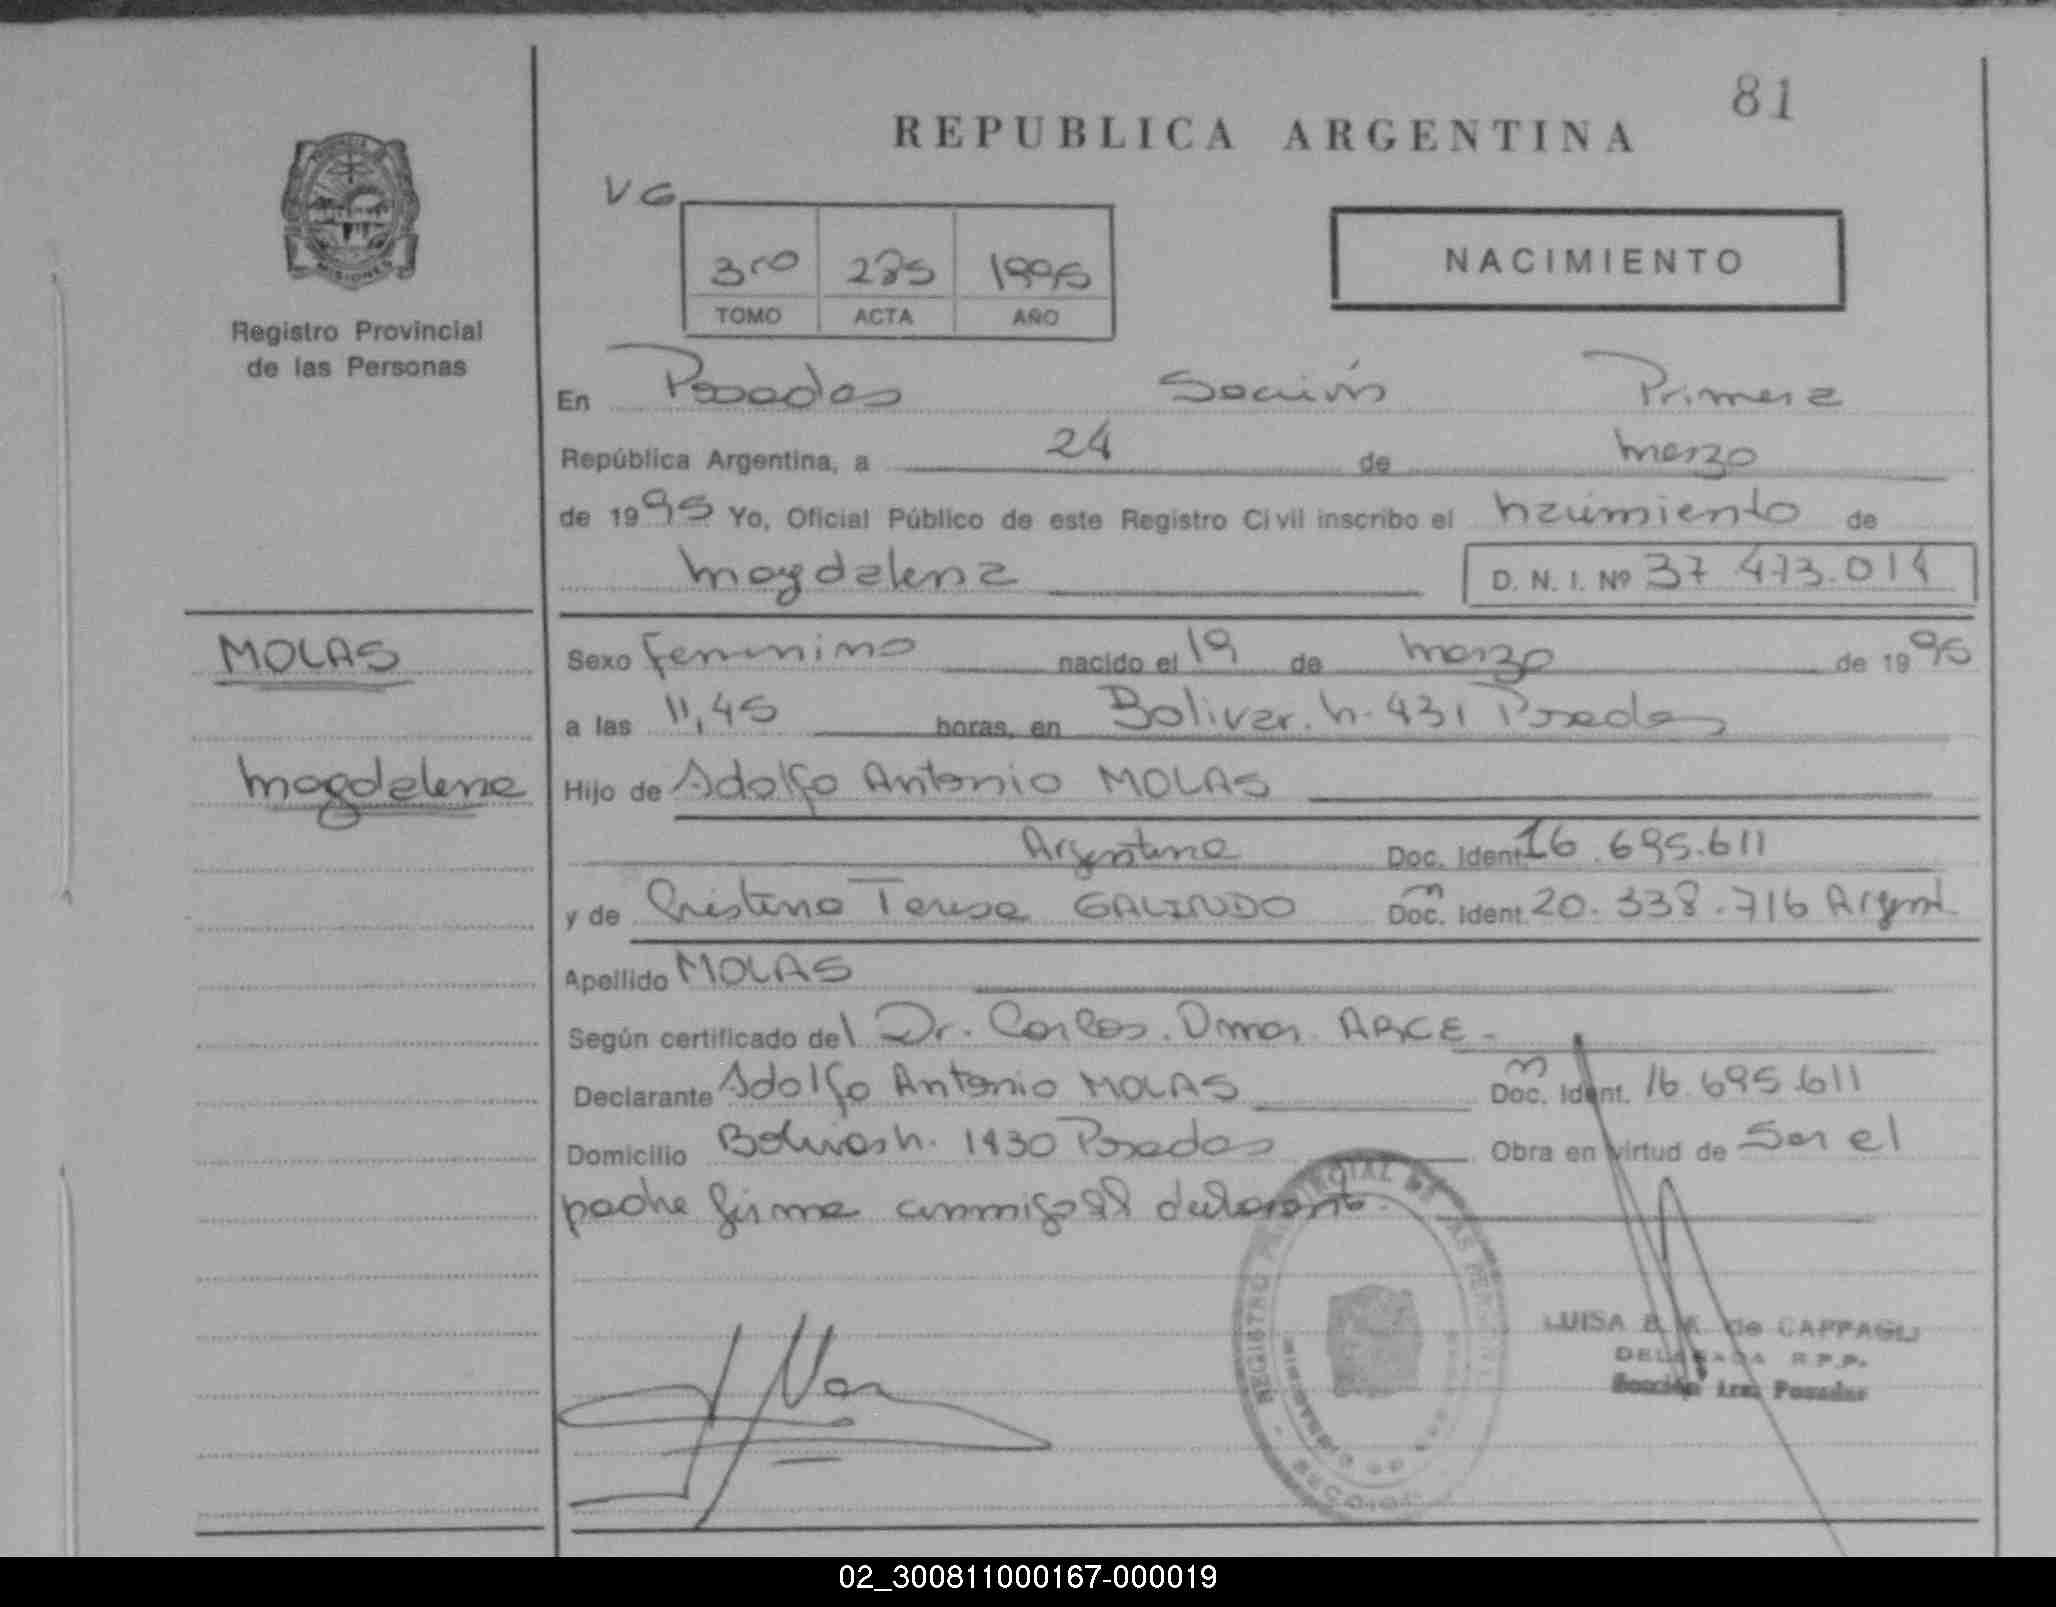 81
REPUBLICA ARGENTINA
VG
3ro 1995
TOMO ACTA AÑO
NACIMIENTO
MISIONES
Registro Provincial
de las Personas
En Posadas Sección Primera
República Argentina, a 24 de marzo
de 1995 Yo, Oficial Público de este Registro Civil inscribo el nacimiento de
Magdalena D. N. I. Nº 37 473.014
MOLAS
Magdalena
Sexo femenino nacido el 19 de marzo de 1995
a las 11,45 horas, en Bolivar. n. 431 Posadas
Hijo de Adolfo Antonio MOLAS
Argentino Doc. Ident. 16.695.611
y de Cristina Teresa GALINDO Doc. Ident. 20.338.716 Argent.
Apellido MOLAS
Según certificado del Dr. Carlos. Omar. ARCE -
Declarante Adolfo Antonio MOLAS Doc. Ident. 16.695.611
Domicilio 1430 Posadas Obra en virtud de Ser el
padre firma conmigo el declarante.
REGISTRO PROVINCIAL DE LAS PERSONAS
LUISA B. K. de CAPPAGLI
DELEGADA R.P.P.
Sección 1ra. Posadas
02_300811000167-000019